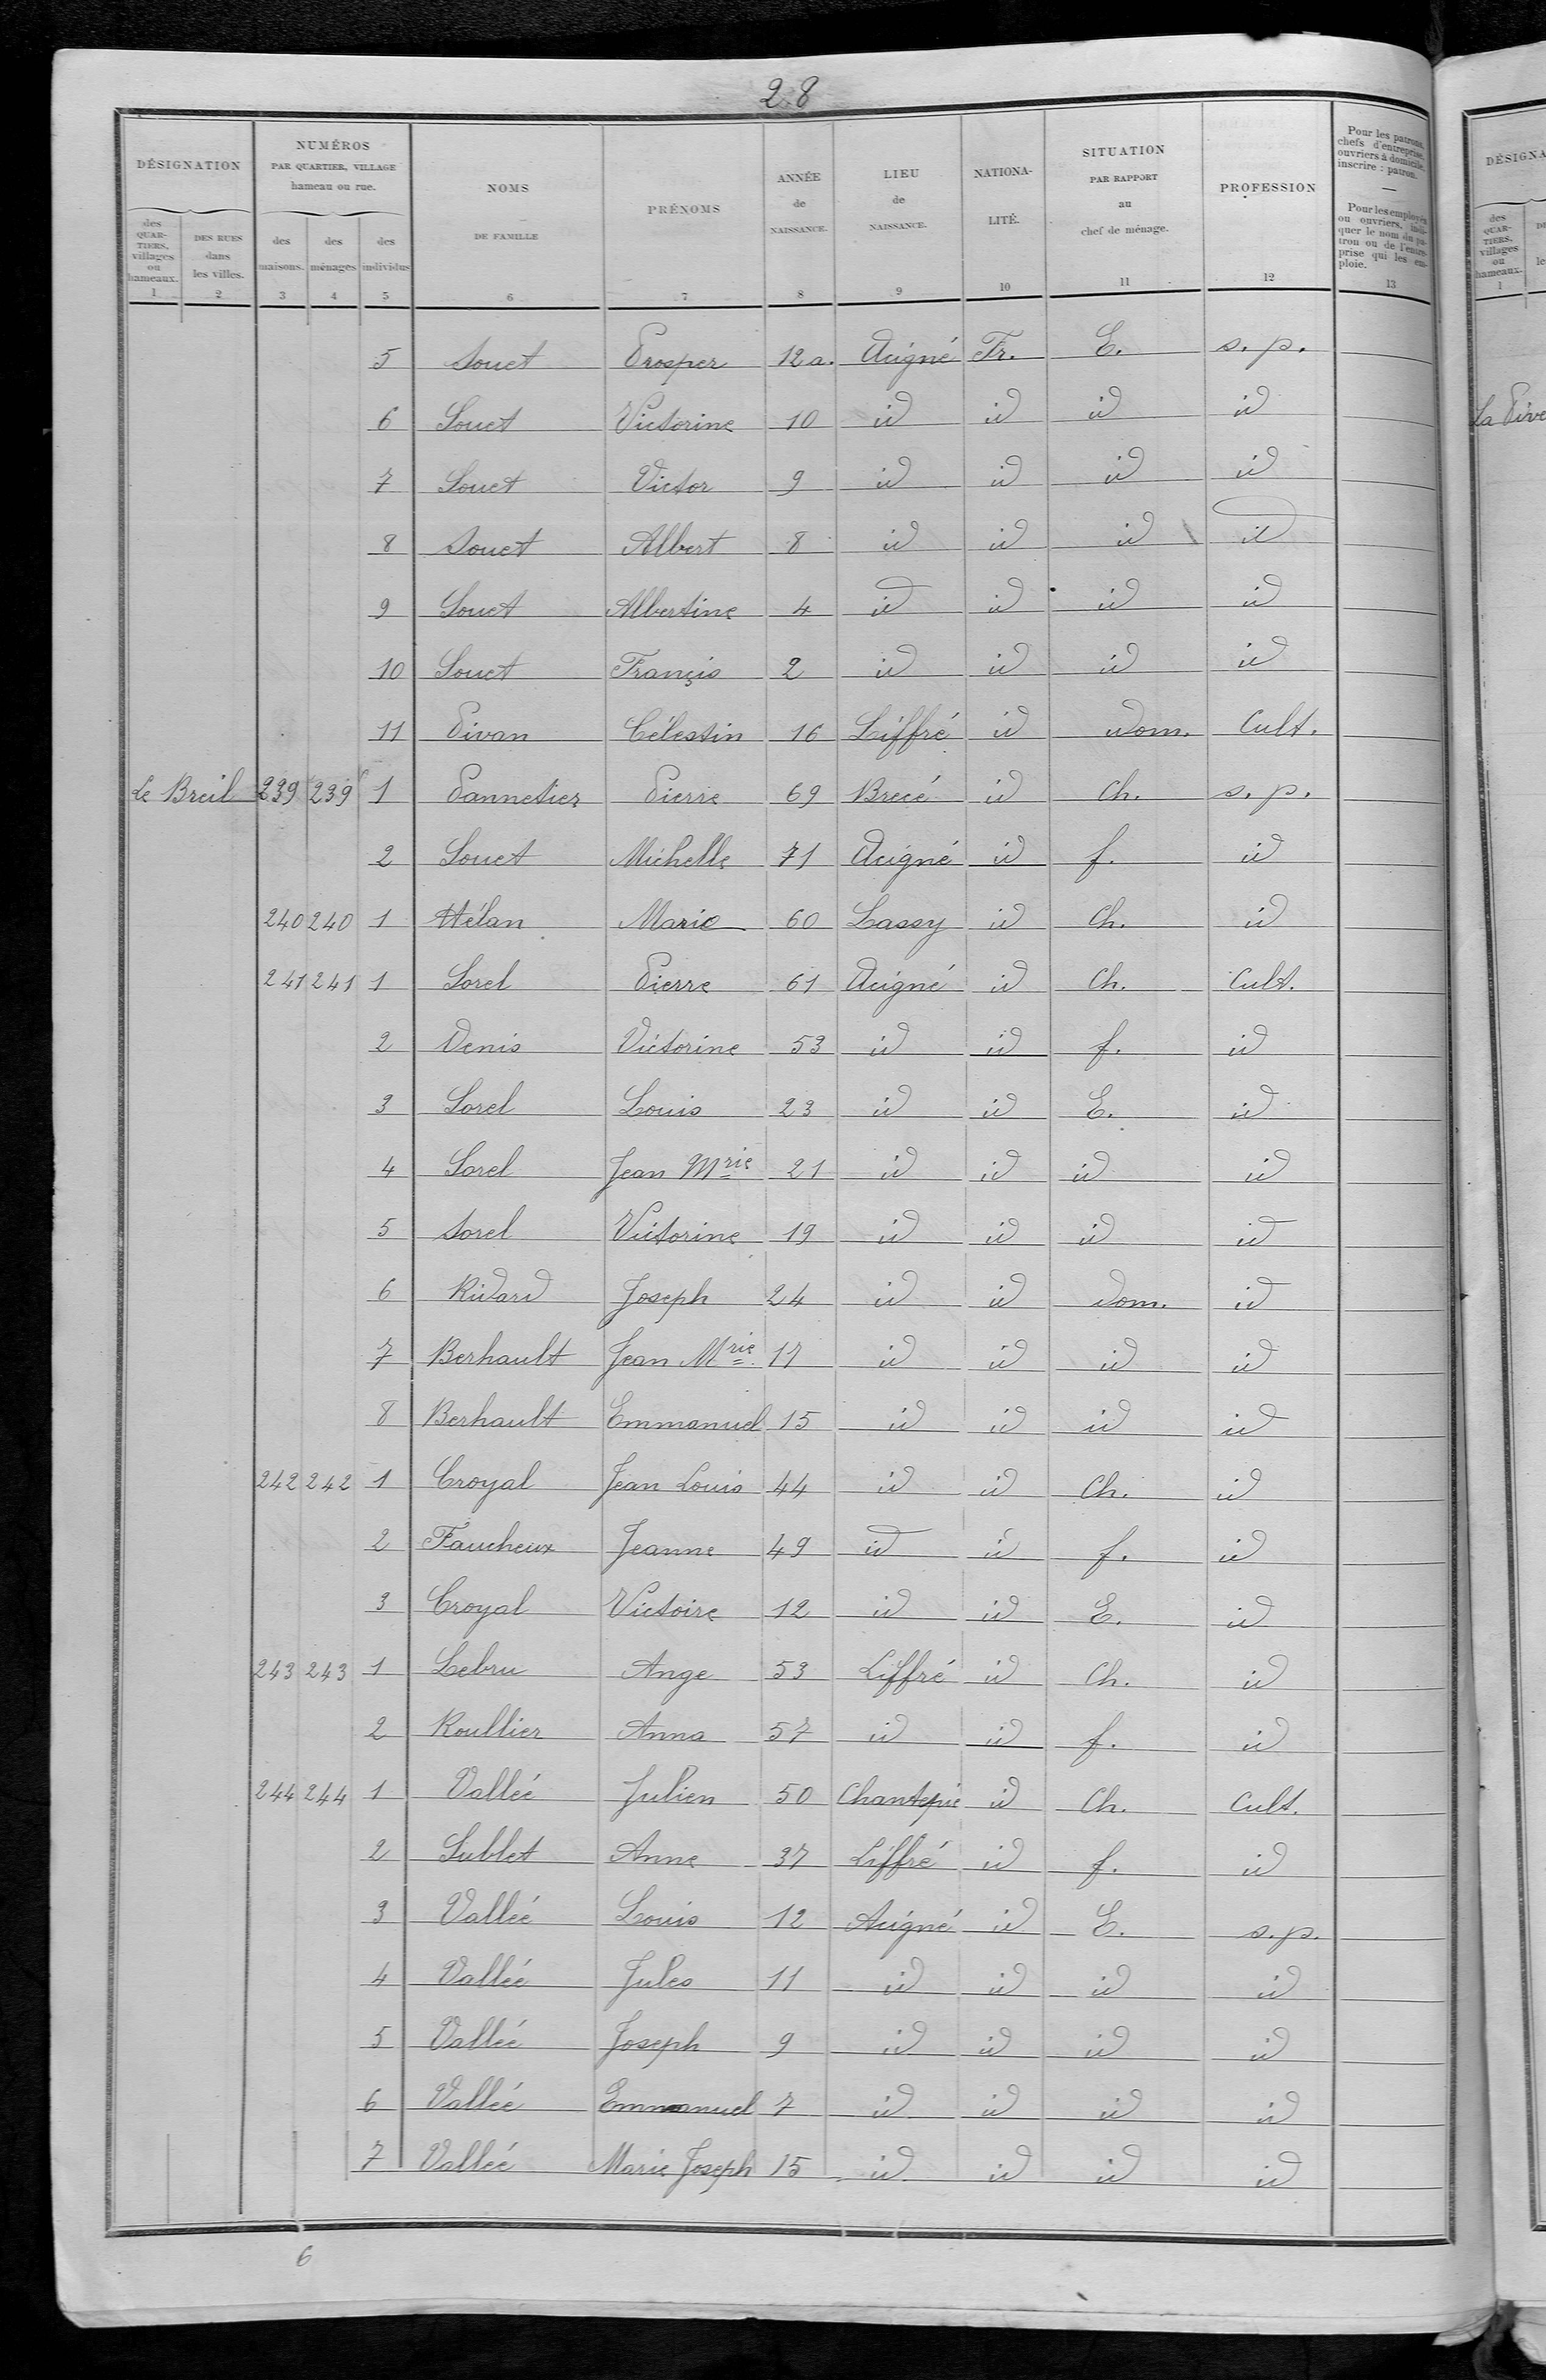 28
DÉSIGNATION
des QUARTIERS, villages ou hameaux. 1
DES RUES dans les villes. 2
NUMÉROS PAR QUARTIER, VILLAGE hameau ou rue.
des maisons. 3
des ménages 4
des individus 5
NOMS DE FAMILLE 6
PRÉNOMS 7
ANNÉE de NAISSANCE. 8
LIEU de NAISSANCE. 9
NATIONALITÉ. 10
SITUATION PAR RAPPORT au chef de ménage. 11
PROFESSION 12
Pour les patrons, chefs d'entreprise, ouvriers à domicile, inscrire : patron. — Pour les employés ou ouvriers, indiquer le nom du patron ou de l'entreprise qui les emploie. 13
5 Souet Prosper 12 a. Acigné Fr. E. s. p.
6 Souet Victorine 10 id id id id
7 Souet Victor 9 id id id id
8 Souet Albert 8 id id id id
9 Souet Albertine 4 id id id id
10 Souet Françis 2 id id id id
11 Divan Célestin 16 Liffré id dom. Cult.
Le Breil 239 239 1 Pannetier Pierre 69 Brecé id Ch. s. p.
2 Souet Michelle 71 Acigné id f. id
240 240 1 Hélan Marie 60 Lassy id Ch. id
241 241 1 Sorel Pierre 61 Acigné id Ch. Cult.
2 Denis Victorine 53 id id f. id
3 Sorel Louis 23 id id E. id
4 Sorel Jean Mrie 21 id id id id
5 Sorel Victorine 19 id id id id
6 Ridard Joseph 24 id id dom. id
7 Berhault Jean Mrie 17 id id id id
8 Berhault Emmanuel 15 id id id id
242 242 1 Croyal Jean Louis 44 id id Ch. id
2 Faucheux Jeanne 49 id id f. id
3 Croyal Victoire 12 id id E. id
243 243 1 Lebru Ange 53 Liffré id Ch. id
2 Roullier Anna 57 id id f. id
244 244 1 Vallée Julien 50 Chantepie id Ch. Cult.
2 Sublet Anne 37 Liffré id f. id
3 Vallée Louis 12 Acigné id E. s. p.
4 Vallée Jules 11 id id id id
5 Vallée Joseph 9 id id id id
6 Vallée Emmanuel 7 id id id id
7 Vallée Marie Joseph 15 id id id id
6